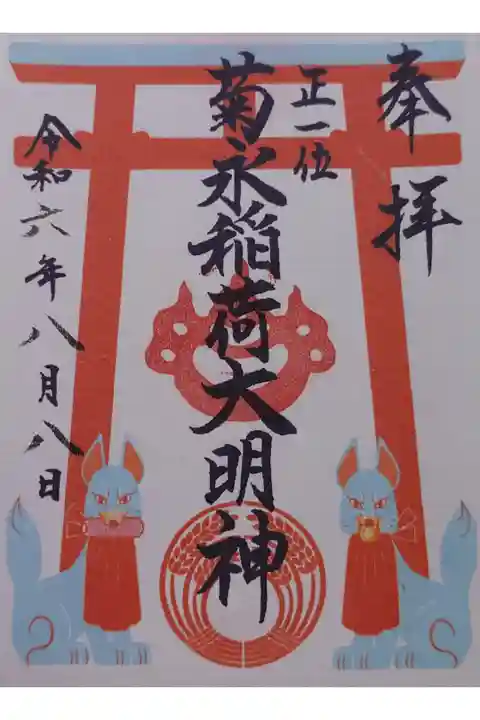 奉拝
正一位
菊永稲荷大明神
令和六年八月八日